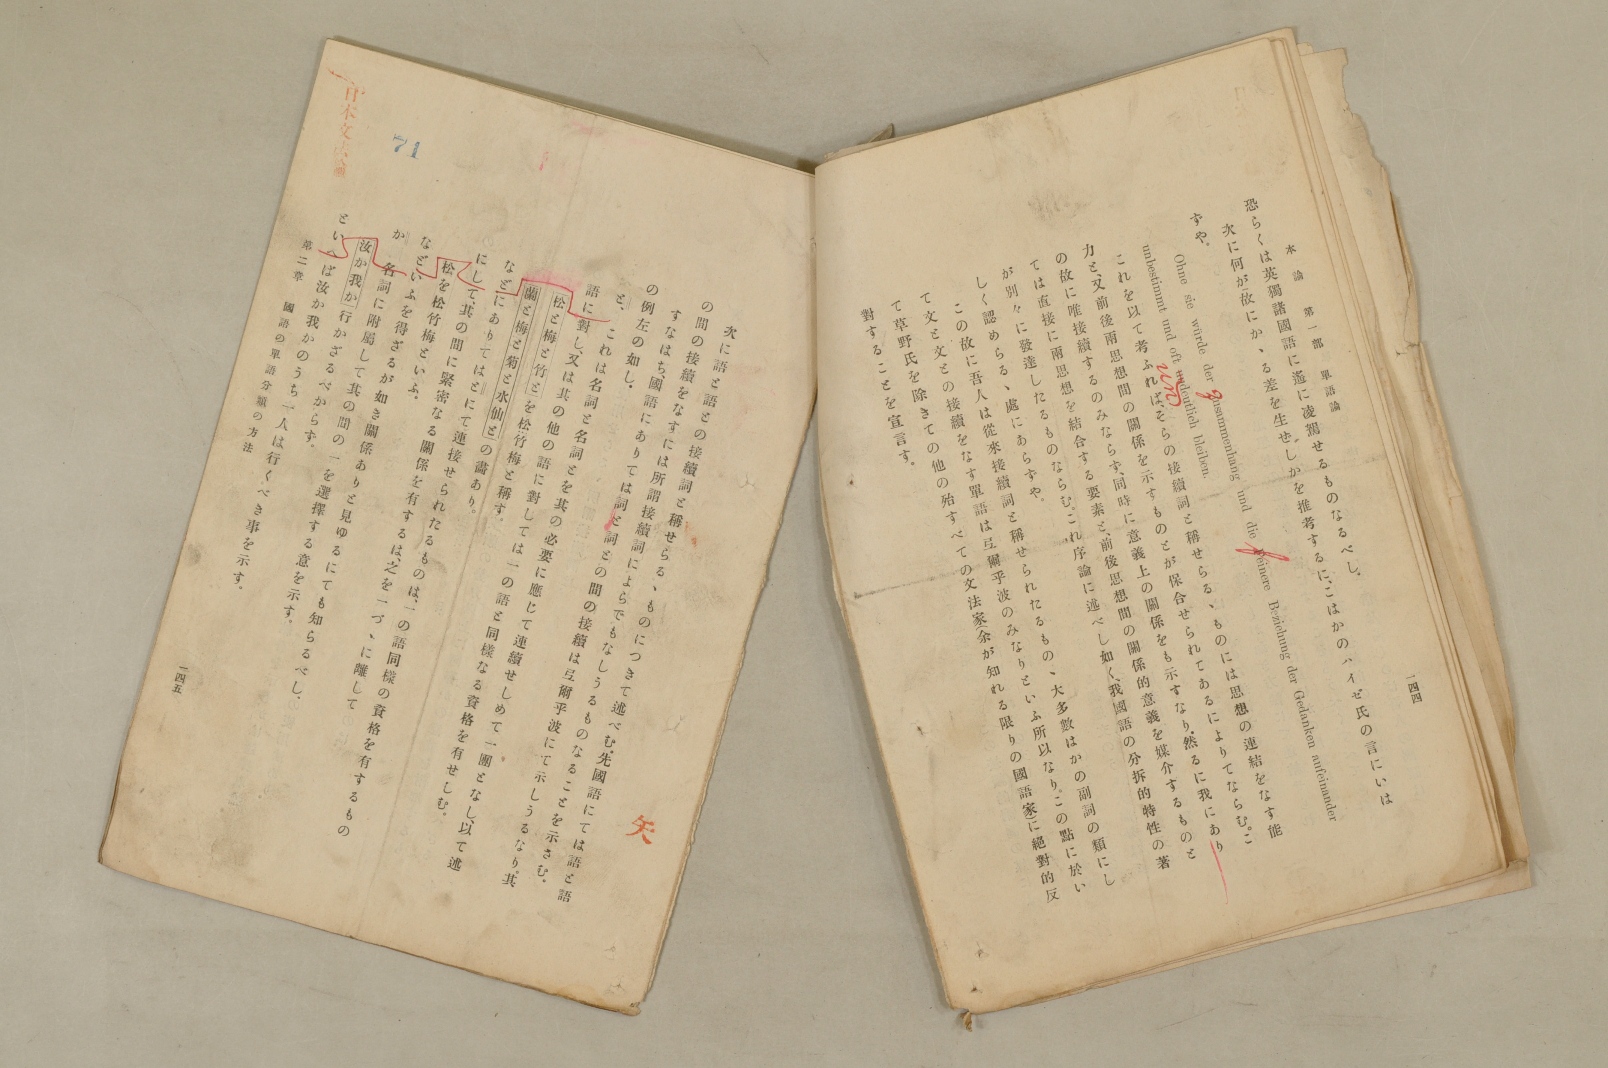 本論 第一部 單語論
一四四
恐らくは英獨諸國語に遙に凌駕せるものなるべし。
次に何が故にかゝる差を生せしかを推考するに、こはかのハイゼ氏の言にいは
ずや。
Ohne sie würde der Zusammenhang und die feinere Beziehung der Gedanken aufeinander
unbestimmt und oft undeutlich bleiben.
これを以て考ふれば、そらの接續詞と稱せらるゝものには思想の連結をなす能
力と、又前後兩思想間の關係を示すものとが保合せられてあるによりてならむ。こ
の故に唯接續するのみならず、同時に意義上の關係をも示すなり。然るに我にあり
ては直接に兩思想を結合する要素と、前後思想間の關係的意義を媒介するものと
が別々に發達したるものならむ。これ序論に述べし如く、我國語の分拆的特性の著
しく認めらるゝ處にあらずや。
この故に吾人は從來接續詞と稱せられたるものゝ大多數はかの副詞の類にし
て文と文との接續をなす單語は弖爾乎波のみなりといふ所以なり。この點に於い
て草野氏を除きての他の殆すべての文法家(余が知れる限りの國語家)に絕對的反
對することを宣言す。
次に語と語との接續詞と稱せらるゝものにつきて述べむ。先國語にては語と語
の間の接續をなすには所謂接續詞によらでもなしうるものなることを示さむ。
すなはち、國語にありては詞と詞との間の接續は弖爾乎波にて示しうるなり。其
の例左の如し。
と、これは名詞と名詞とを其の必要に應じて連續せしめて一團となし、以て述
語に對し、又は其の他の語に對しては一の語と同樣なる資格を有せしむ。
松と梅と竹とを松竹梅と稱す。
蘭と梅と菊と水仙との畵あり。
などにありてはとにて連接せられたるものは、一の語同樣の資格を有するもの
にして、其の間に緊密なる關係を有するは之を一づゝに離して
松を松竹梅といふ。
などいふを得ざるが如き關係ありと見ゆるにても知らるべし。
か 名詞に附屬して其の間の一を選擇する意を示す。
汝か我か行かざるべからず。
といへば汝か我かのうち一人は行くべき事を示す。
第二章 國語の單語分類の方法
一四五
71
矢